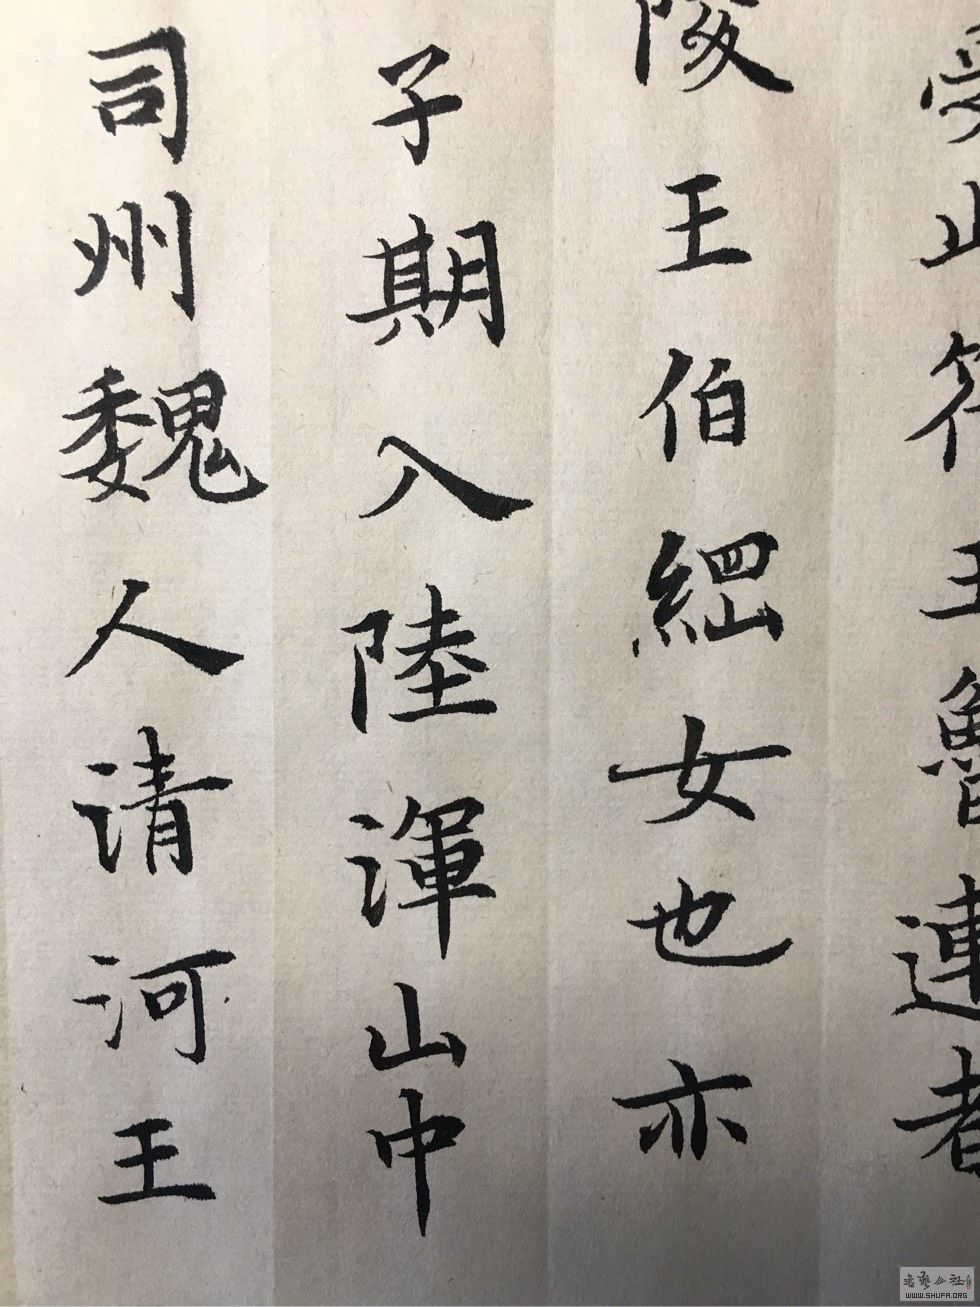 止符王魯連者
陵王伯綱女也亦
子期入陸渾山中
司州魏人请河王
WWW.SHUFA.ORG